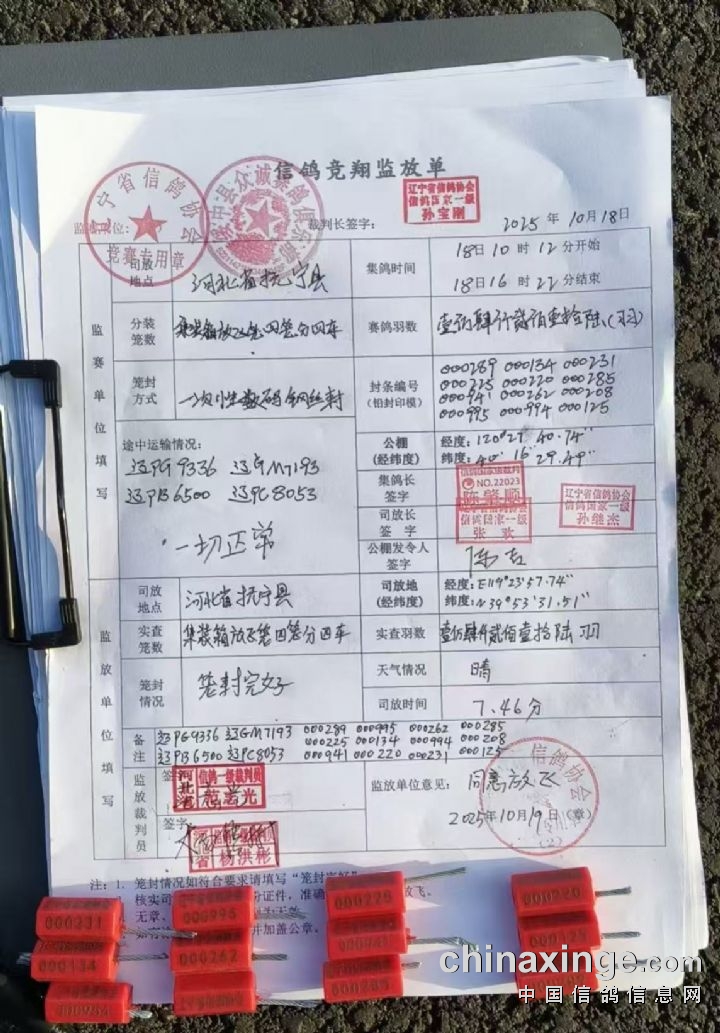 信鸽竞翔监放单
辽宁省信鸽协会
竞赛专用章
辽宁省信鸽协会
信鸽国家一级
孙宝刚
裁判长签字:
2025年 10月18日
司放地点 河北省抚宁县
集鸽时间 18日10时12分开始
18日16时22分结束
分装笼数 集装箱放飞笼四笼分四车
赛鸽羽数 壹万肆仟贰佰壹拾陆(羽)
笼封方式 一次性数码钢丝封
封条编号(铅封印模)
000289 000134 000231
000225 000220 000285
000941 000262 000208
000995 000994 000125
监赛单位填写
途中运输情况:
辽PG9336 辽GM7193
辽PB6500 辽PC8053
一切正常
公棚(经纬度) 经度:120°27′40.74″
纬度:40°16′29.49″
集鸽长签字
NO.22023
陈肇顺
司放长签字
信鸽国家一级
张欢
辽宁省信鸽协会
信鸽国家一级
孙继杰
公棚发令人签字
司放地点 河北省抚宁县
司放地(经纬度) 经度:E119°23′57.74″
纬度:N39°53′31.51″
实查笼数 集装箱放飞笼四笼分四车
实查羽数 壹万肆仟贰佰壹拾陆羽
笼封情况 笼封完好
天气情况 晴
司放时间 7.46分
监放单位填写
备注 辽PG9336 辽GM7193 000289 000995 000262 000285
000225 000134 000994 000208
辽PB6500 辽PC8053 000941 000220 000231 000125
监放裁判员
河北省 信鸽一级裁判员
签字:
省 杨洪彬
监放单位意见: 同意放飞
2025年10月19日(章)
信鸽协会
(2)
注:1. 笼封情况如符合要求请填写“笼封完好”
000231
000995
000225
000220
000134
000262
000941
000125
000994
000285
chinaxinge.com
中国信鸽信息网